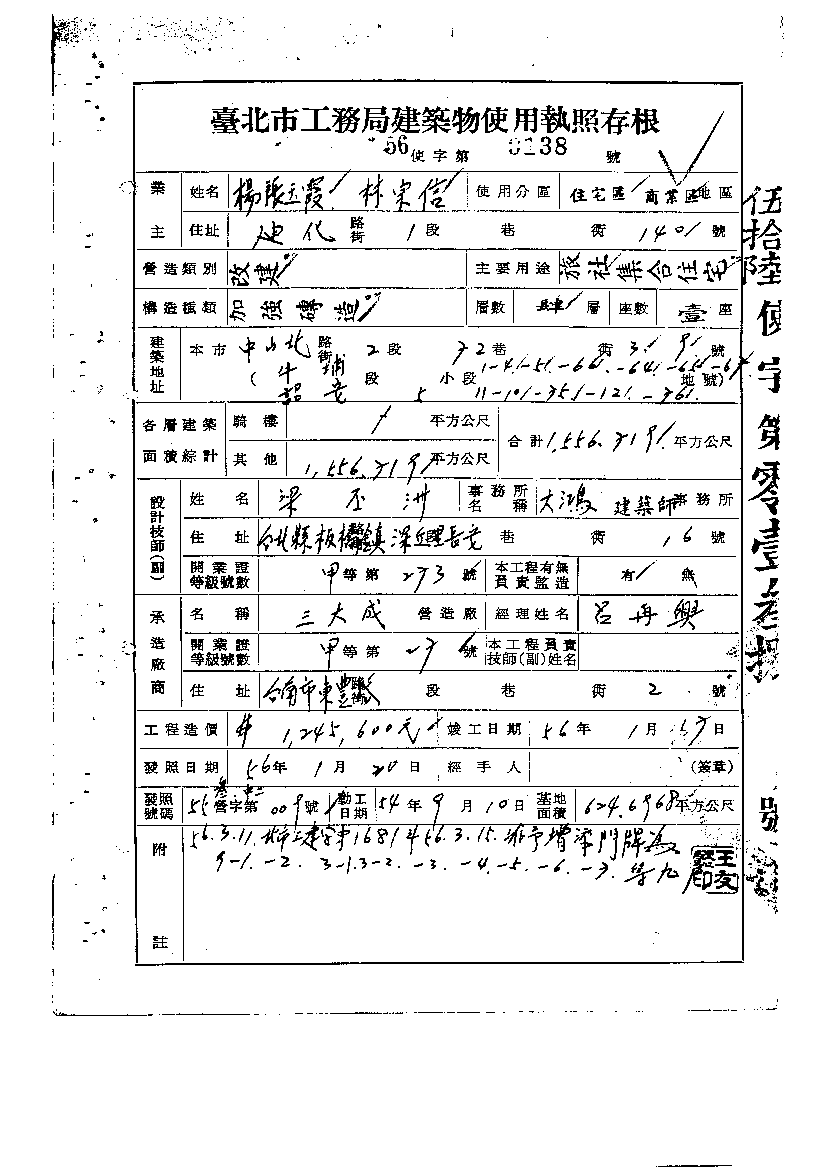 臺北市工務局建築物使用執照存根
56 使字第 0138 號
業主 姓名 楊張玉霞 林宋信 使用分區 住宅區 商業區 地區
住址 迪化 路街 1 段 巷 街 140 號
營造類別 改建 主要用途 旅社集合住宅
構造種類 加強磚造 層數 肆 層 座數 壹 座
建築地址 本市 中山北 路街 2 段 72 巷 街 3. 9 號
( 牛埔 段 5 小段 地號)
各層建築面積綜計 騎樓 / 平方公尺 合計 1,556.719 平方公尺
其他 1,556.719 平方公尺
設計技師(副) 姓名 梁丕洲 事務所名稱 大鴻 建築師事務所
住址 台北縣板橋鎮深丘里長安 巷 街 16 號
開業證等級號數 甲等第 273 號 本工程有無負責監造 有 無
承造廠商 名稱 三大成 營造廠 經理姓名 呂再興
開業證等級號數 甲等第 號 本工程負責技師(副)姓名
住址 台南市東豐 路街 段 巷 街 2 號
工程造價 1,245,600元 竣工日期 56年 1月 日
發照日期 56年 1月 20日 經手人 (簽章)
發照號碼 55 營字第 009 號 動工日期 54年 9月 10日 基地面積 624.6968 平方公尺
附註 56.3.11. 56.3.15. 增 門牌為
9-1.-2. 3-1.3-2.-3.-4.-5.-6.-7. 等九
伍拾陸使字第零壹叁捌號